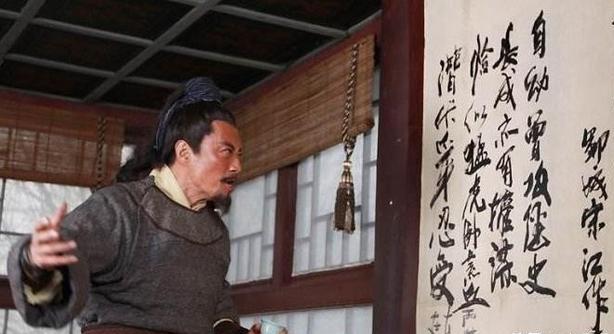 鄆城宋江作
自幼曾攻經史
長成亦有權謀
恰似猛虎卧荒丘
潛伏爪牙忍受